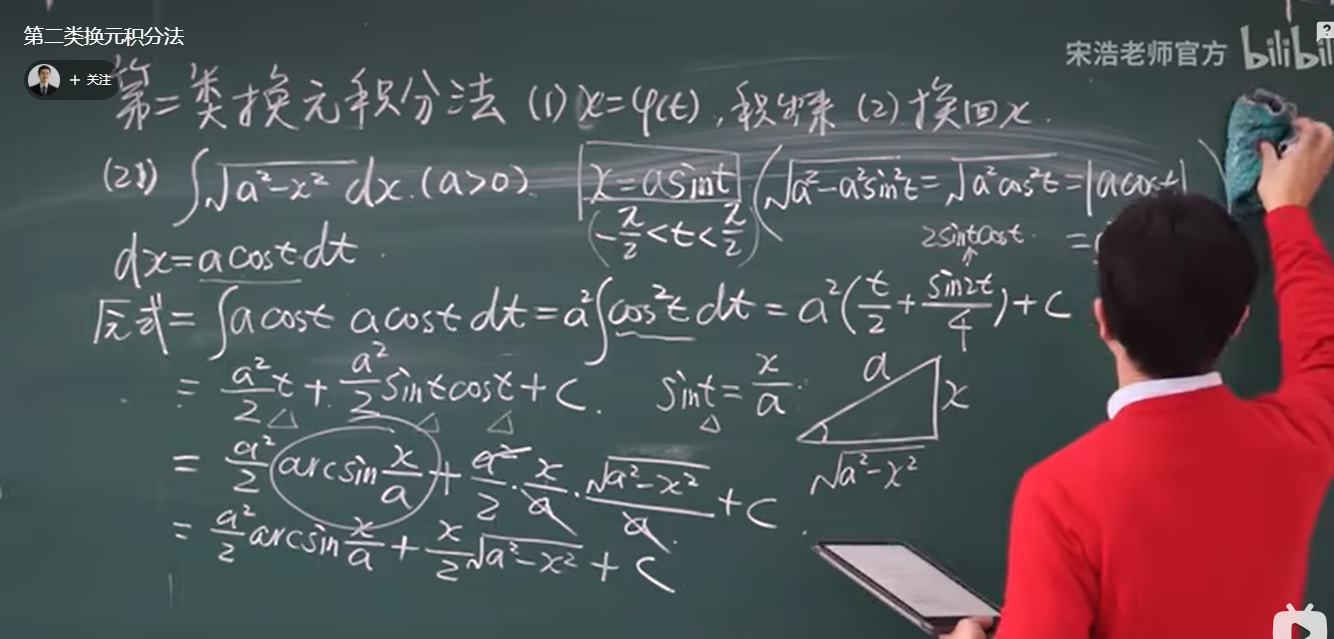 第二类换元积分法
+ 关注
宋浩老师官方 bilibili
第二类换元积分法 (1) x=φ(t), 积出来 (2) 换回x.
(21) ∫√(a²-x²) dx. (a>0). x=asint (√(a²-a²sin²t)=√(a²cos²t)=|acost|
(-π/2<t<π/2)
2sintcost
=
dx=acostdt.
原式=∫acost acost dt=a²∫cos²t dt=a²(t/2+sin2t/4)+C
=a²/2 t+a²/2 sintcost+C. sint=x/a.
a
x
√(a²-x²)
=a²/2 arcsin x/a+a²/2·x/a·√(a²-x²)/a+C.
=a²/2 arcsin x/a+x/2 √(a²-x²)+C